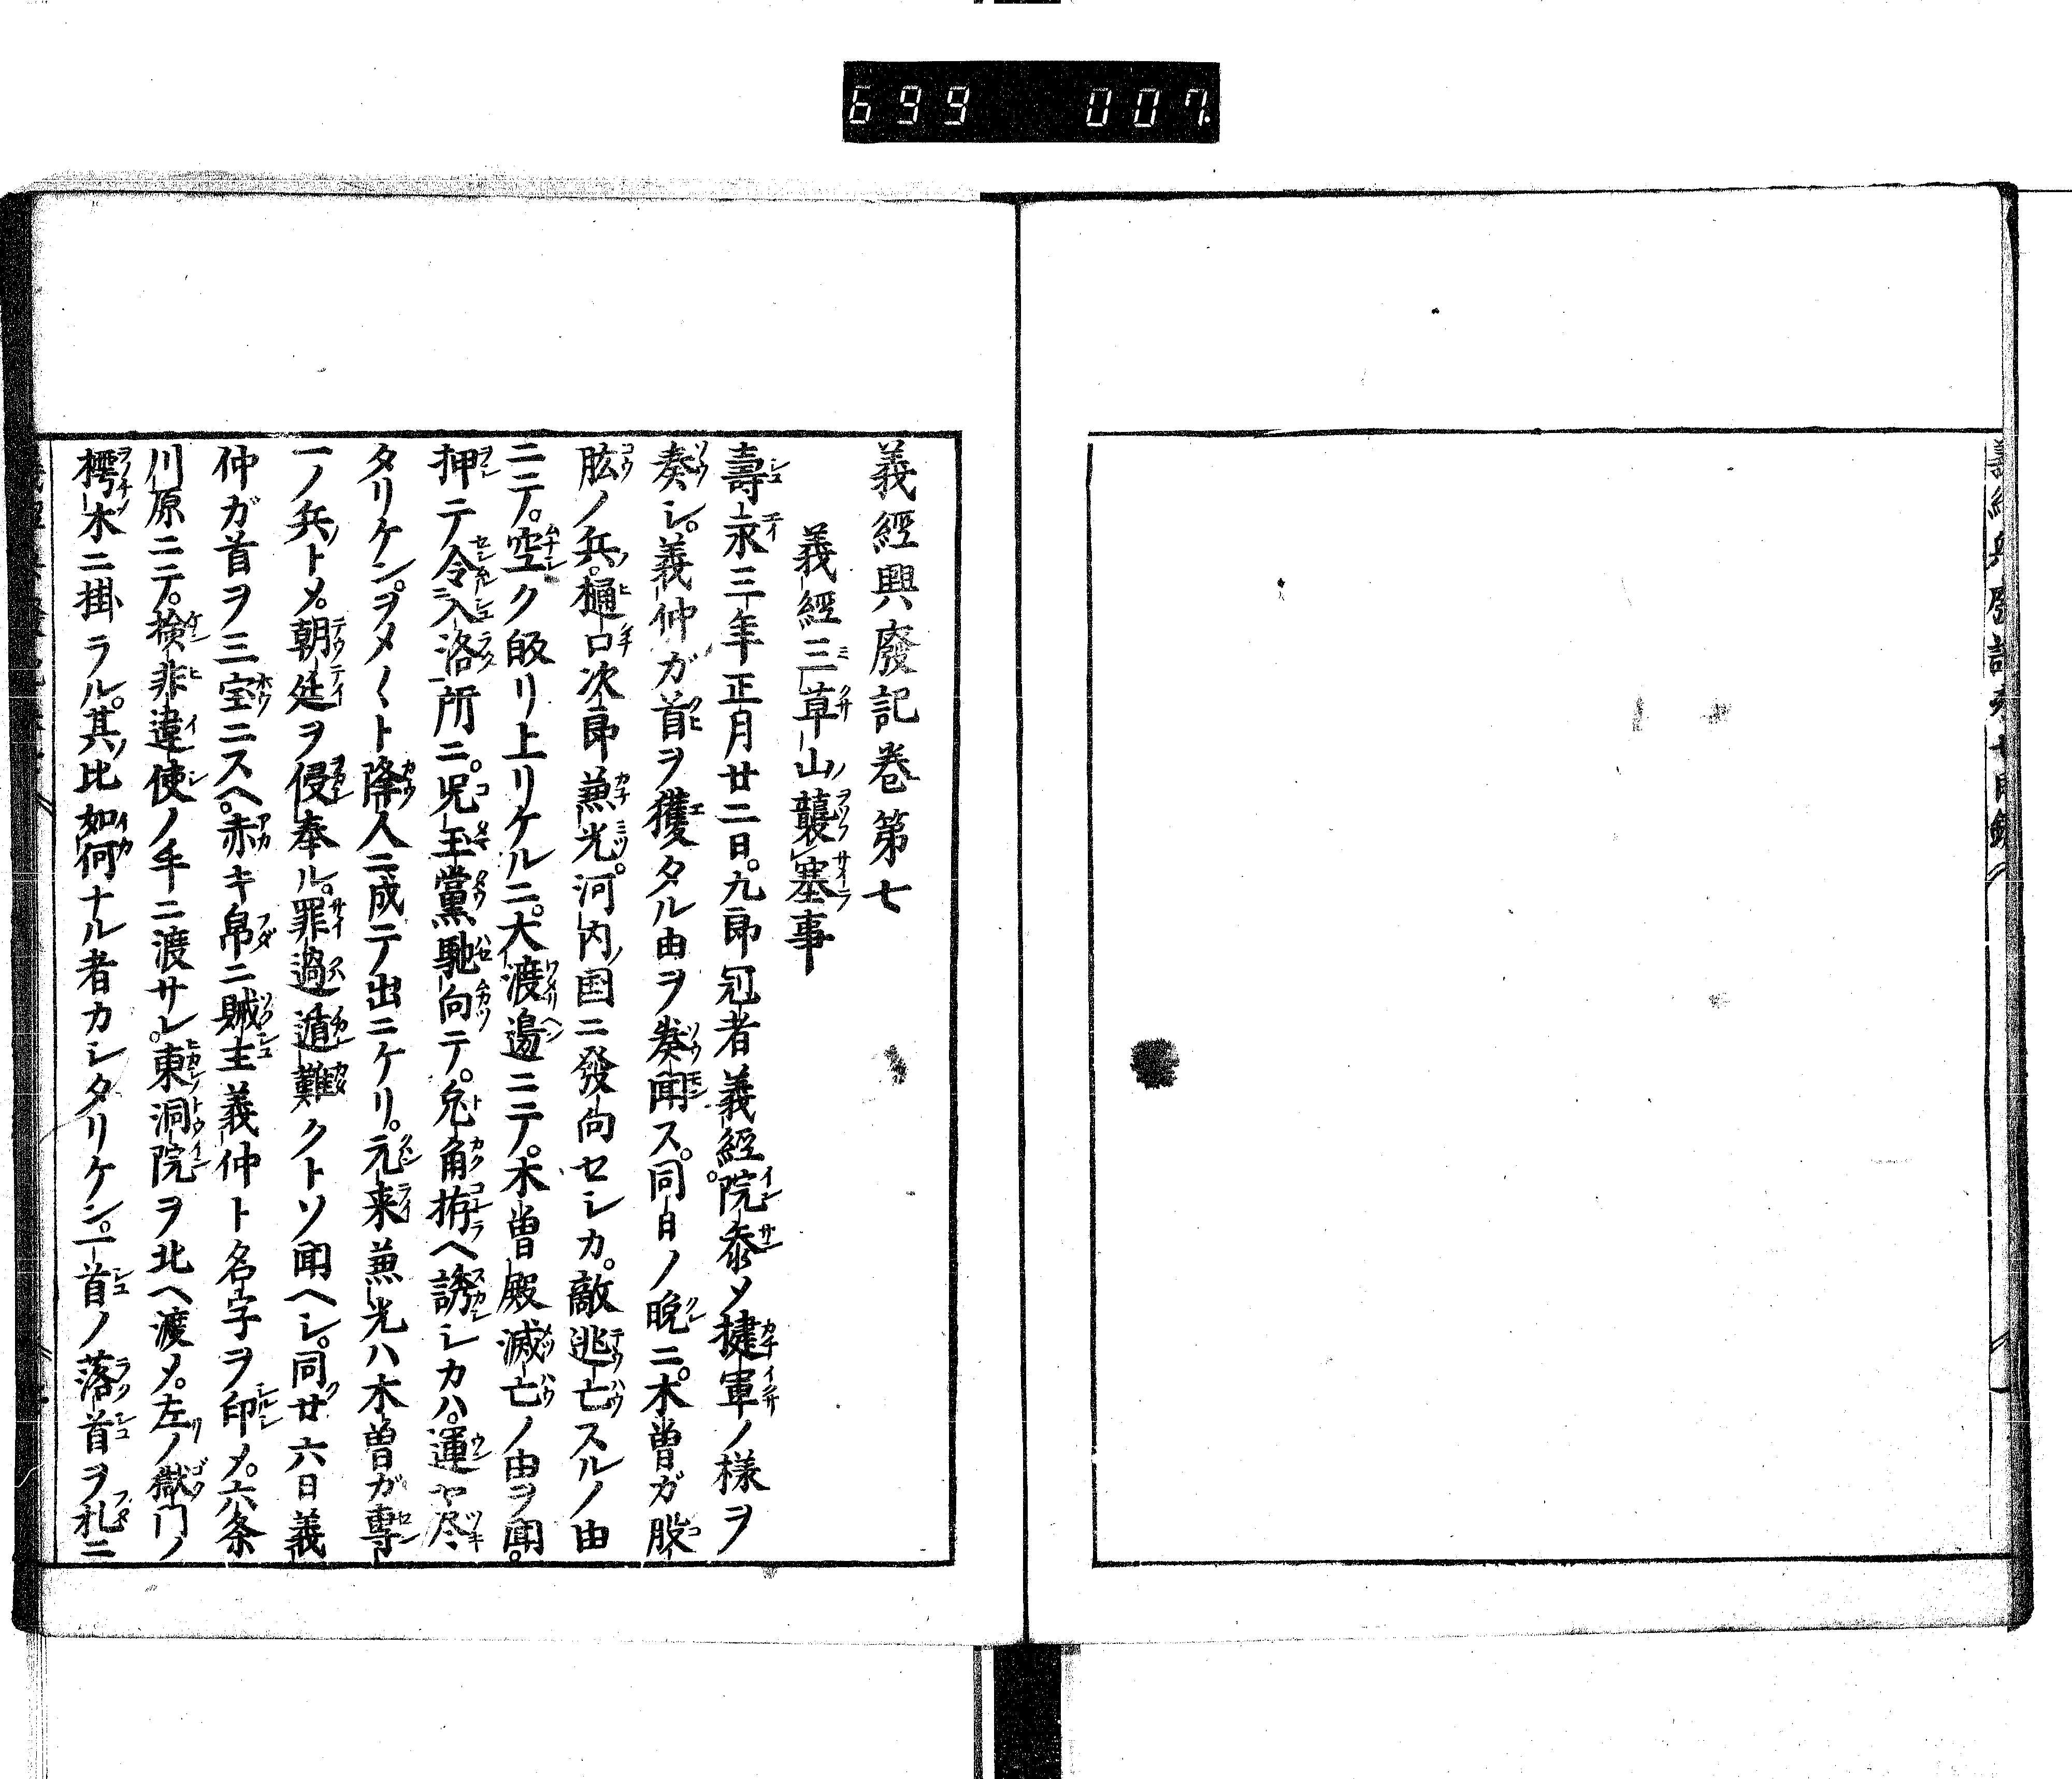 699 007
義經興廢記巻第七
義經三草山襲塞事
壽永三年正月廿二日。九郎冠者義經。院參乄揵軍ノ様ヲ
奏シ。義仲ガ首ヲ獲タル由ヲ奏聞ス。同日ノ晩ニ。木曽ガ股
肱ノ兵。樋口次郎兼光。河内国ニ發向セシカ。敵逃亡スルノ由
ニテ。空ク皈リ上リケルニ。大渡邉ニテ。木曽殿滅亡ノ由ヲ聞。
押テ令入洛所ニ。児玉黨馳向テ。兎角拵ヘ誘シカハ。運ヤ尽
タリケン。ヲメ〱ト降人ニ成テ出ニケリ。元来兼光ハ木曽ガ專
一ノ兵トメ。朝廷ヲ侵奉ル。罪過遁難クトソ聞ヘシ。同廿六日義
仲ガ首ヲ三宝ニスヘ。赤キ帛ニ賊主義仲ト名字ヲ印メ。六条
川原ニテ。検非違使ノ手ニ渡サレ。東洞院ヲ北ヘ渡メ。左ノ獄門ノ
樗木ニ掛ラル。其比如何ナル者カシタリケン。一首ノ落首ヲ札ニ